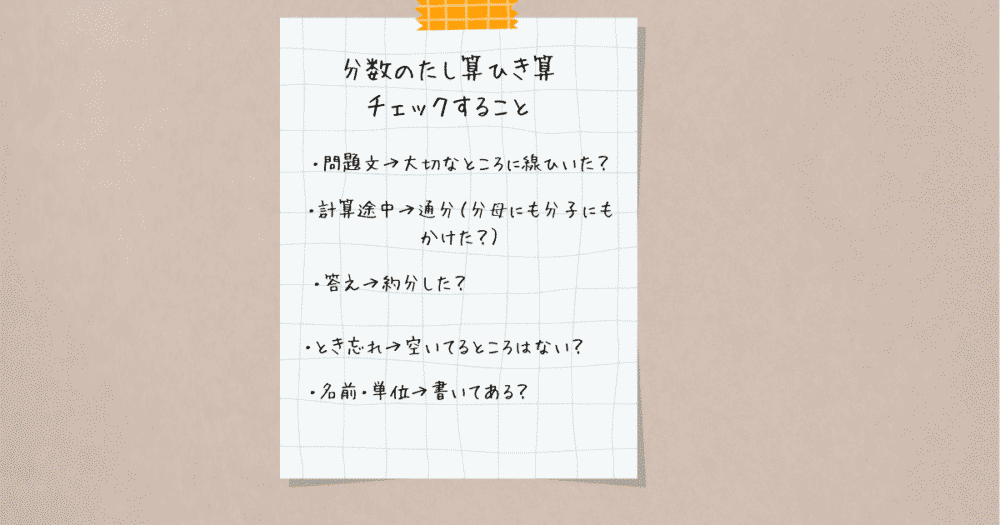 分数のたし算ひき算
チェックすること
・問題文→大切なところに線ひいた?
・計算途中→通分(分母にも分子にも
かけた?)
・答え→約分した?
・とき忘れ→空いてるところはない?
・名前・単位→書いてある?